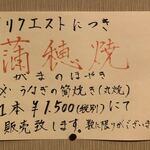 リクエストにつき
蒲穂焼
がまのほやき
〆・うなぎの筒焼き(丸焼)
1本¥1,500(税別)にて
販売致します。数に限りがございます